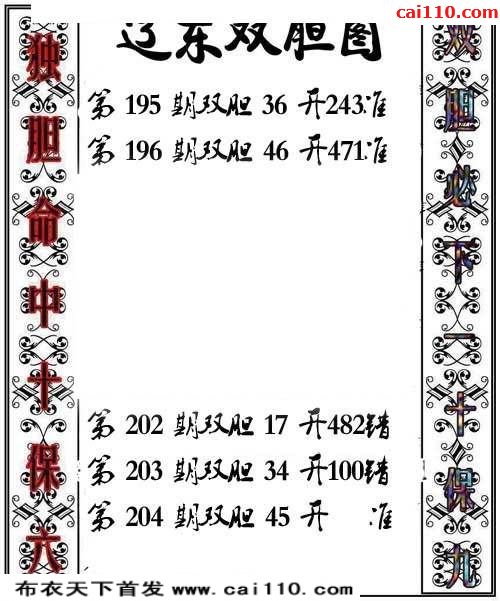 cai110.com
辽东双胆图
独胆命中十保六
第 195 期双胆 36 开243准
第 196 期双胆 46 开471准
第 202 期双胆 17 开482错
第 203 期双胆 34 开100错
第 204 期双胆 45 开 准
双胆必下二十保九
布衣天下首发 www.cai110.com